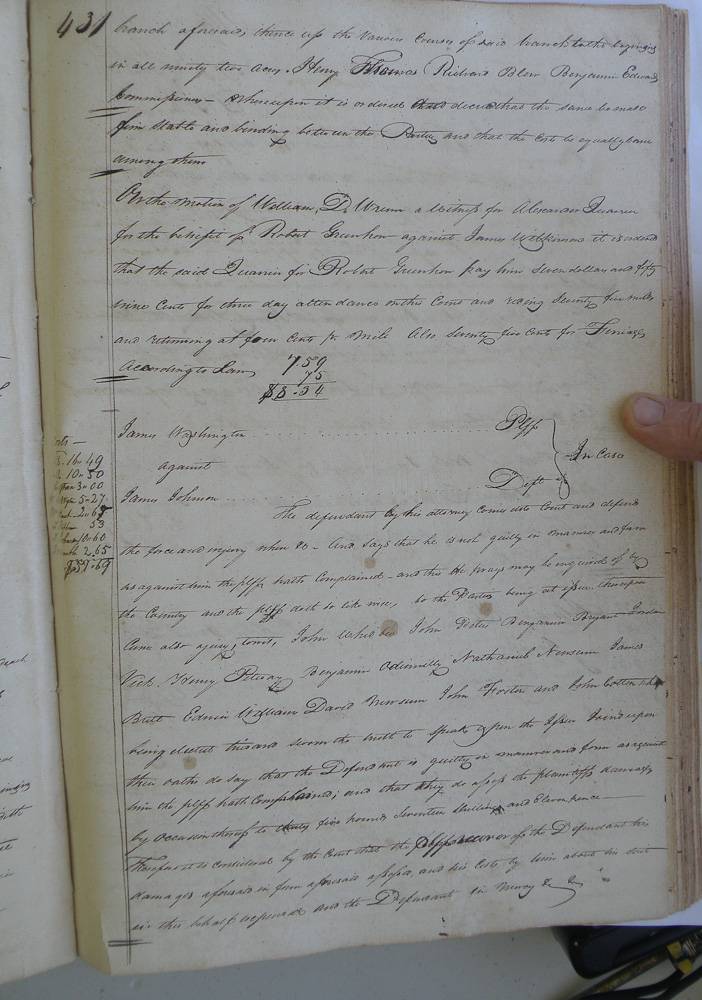 431
branch aforesaid, thence up the various courses of said branch to the beginning
in all ninety two acres. Henry Thomas Richard Blow Benjamin Edwards
Commissioners — Whereupon it is ordered and decreed that the same be made
firm stable and binding between the Parties and that the Costs be equally borne
among them
On the motion of William D. Wrenn a witness for Alexander Quarrier
for the benefit of Robert Greenhow against James Wilkinson it is ordered
that the said Quarrier for Robert Greenhow pay him seven dollars and fifty
nine Cents for three day attendance on this Court and riding seventy five miles
and returning at four Cents pr mile Also seventy five Cents for Ferriages
According to Law
7.59
75
$8.34
James Washington Plff
against In Case
James Johnson Deft
The defendant by his attorney comes into Court and defend
the force and injury when &c - And says that he is not guilty in manner and form
as against him the plff hath Complained - and this he prays may be inquired of by
the Country and the plff doth so like wise, So the Parties being at issue thereupon
Came also a jury, towit, John John Peter Benjamin Bryant Jordan
Vick Henry Benjamin Nathaniel Newsum James
Britt Edwin William David Newsum John Foster and John Cotten who
being elected tried and sworn the truth to speak upon the Issue Joined upon
their oaths do say that the Defendant is guilty in manner and form as against
him the plff hath Complained; and that they do assess the plaintiffs damages
by occasion thereof to thirty five pounds Seventeen Shillings and Eleven pence
Therefore it is considered by the Court that the plff recover of the Defendant his
damages aforesaid in form aforesaid assessed, and his Costs by him about his suit
in this behalf expended and the Defendant in mercy &c
16.49
10.50
3.00
5.27
53
10.60
2.65